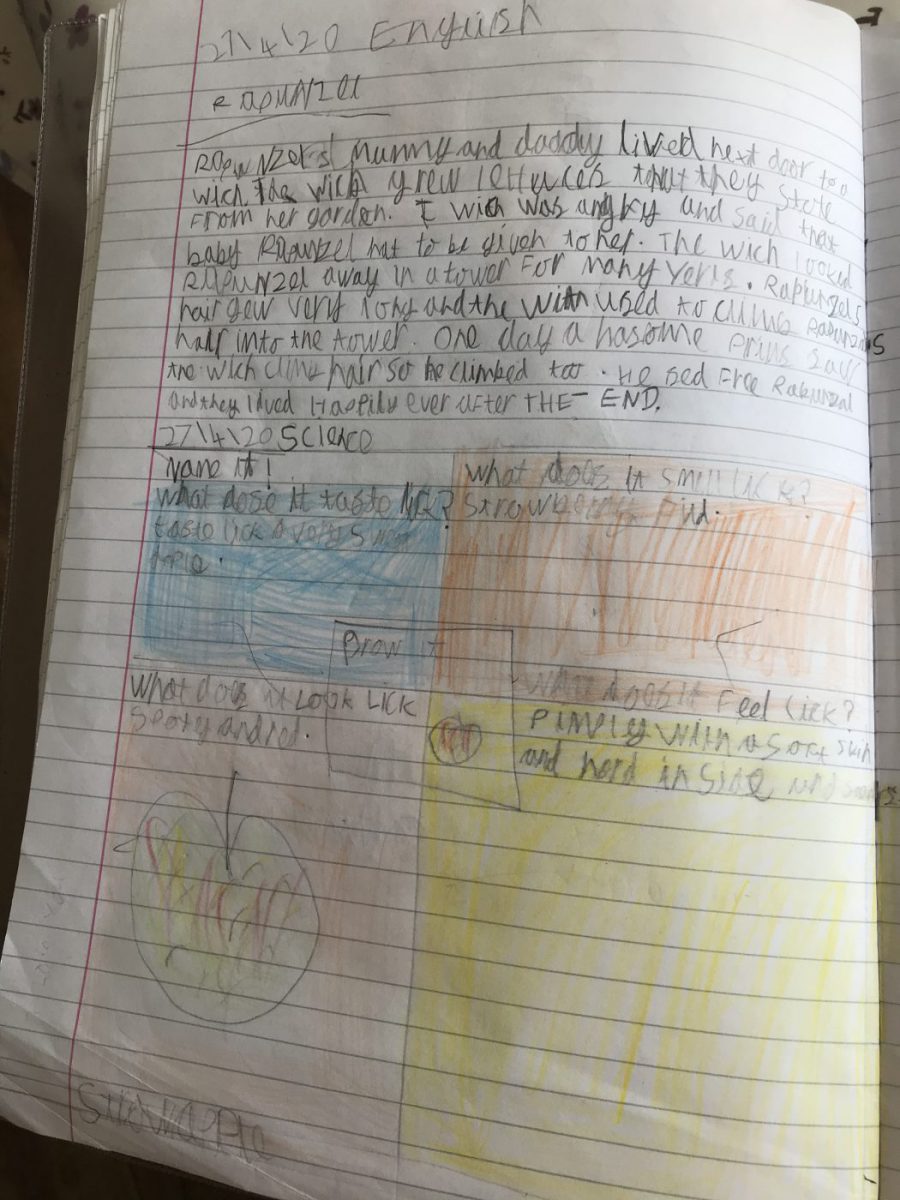 27\4\20 English
RapUNzel
RapuNzel's Mummy and daddy lived next door too
wich the wich grew lettuces that they stole
From her garden. T wich was angry and said that
baby RaPunzel hat to be given to her. The wich looked
RaPUNZel away in a tower For many yers. Rapunzels
hair gew very long and the with used to climb Rapunzals
hair into the tower. One day a hasome Prins saw
the wich climb hair so he climbed too. He sed Free Rapunzal
and they lived Happily ever after THE END.
27\4\20 Science
Name it!
What dose it taste lick?
taste lick a very sweet
Aple.
What does it smell lick?
Strawberry and.
Brow it
What does it LOOK LICK
Spoty and red.
What does it Feel Lick?
Pimply with a soft skin
and herd in side and